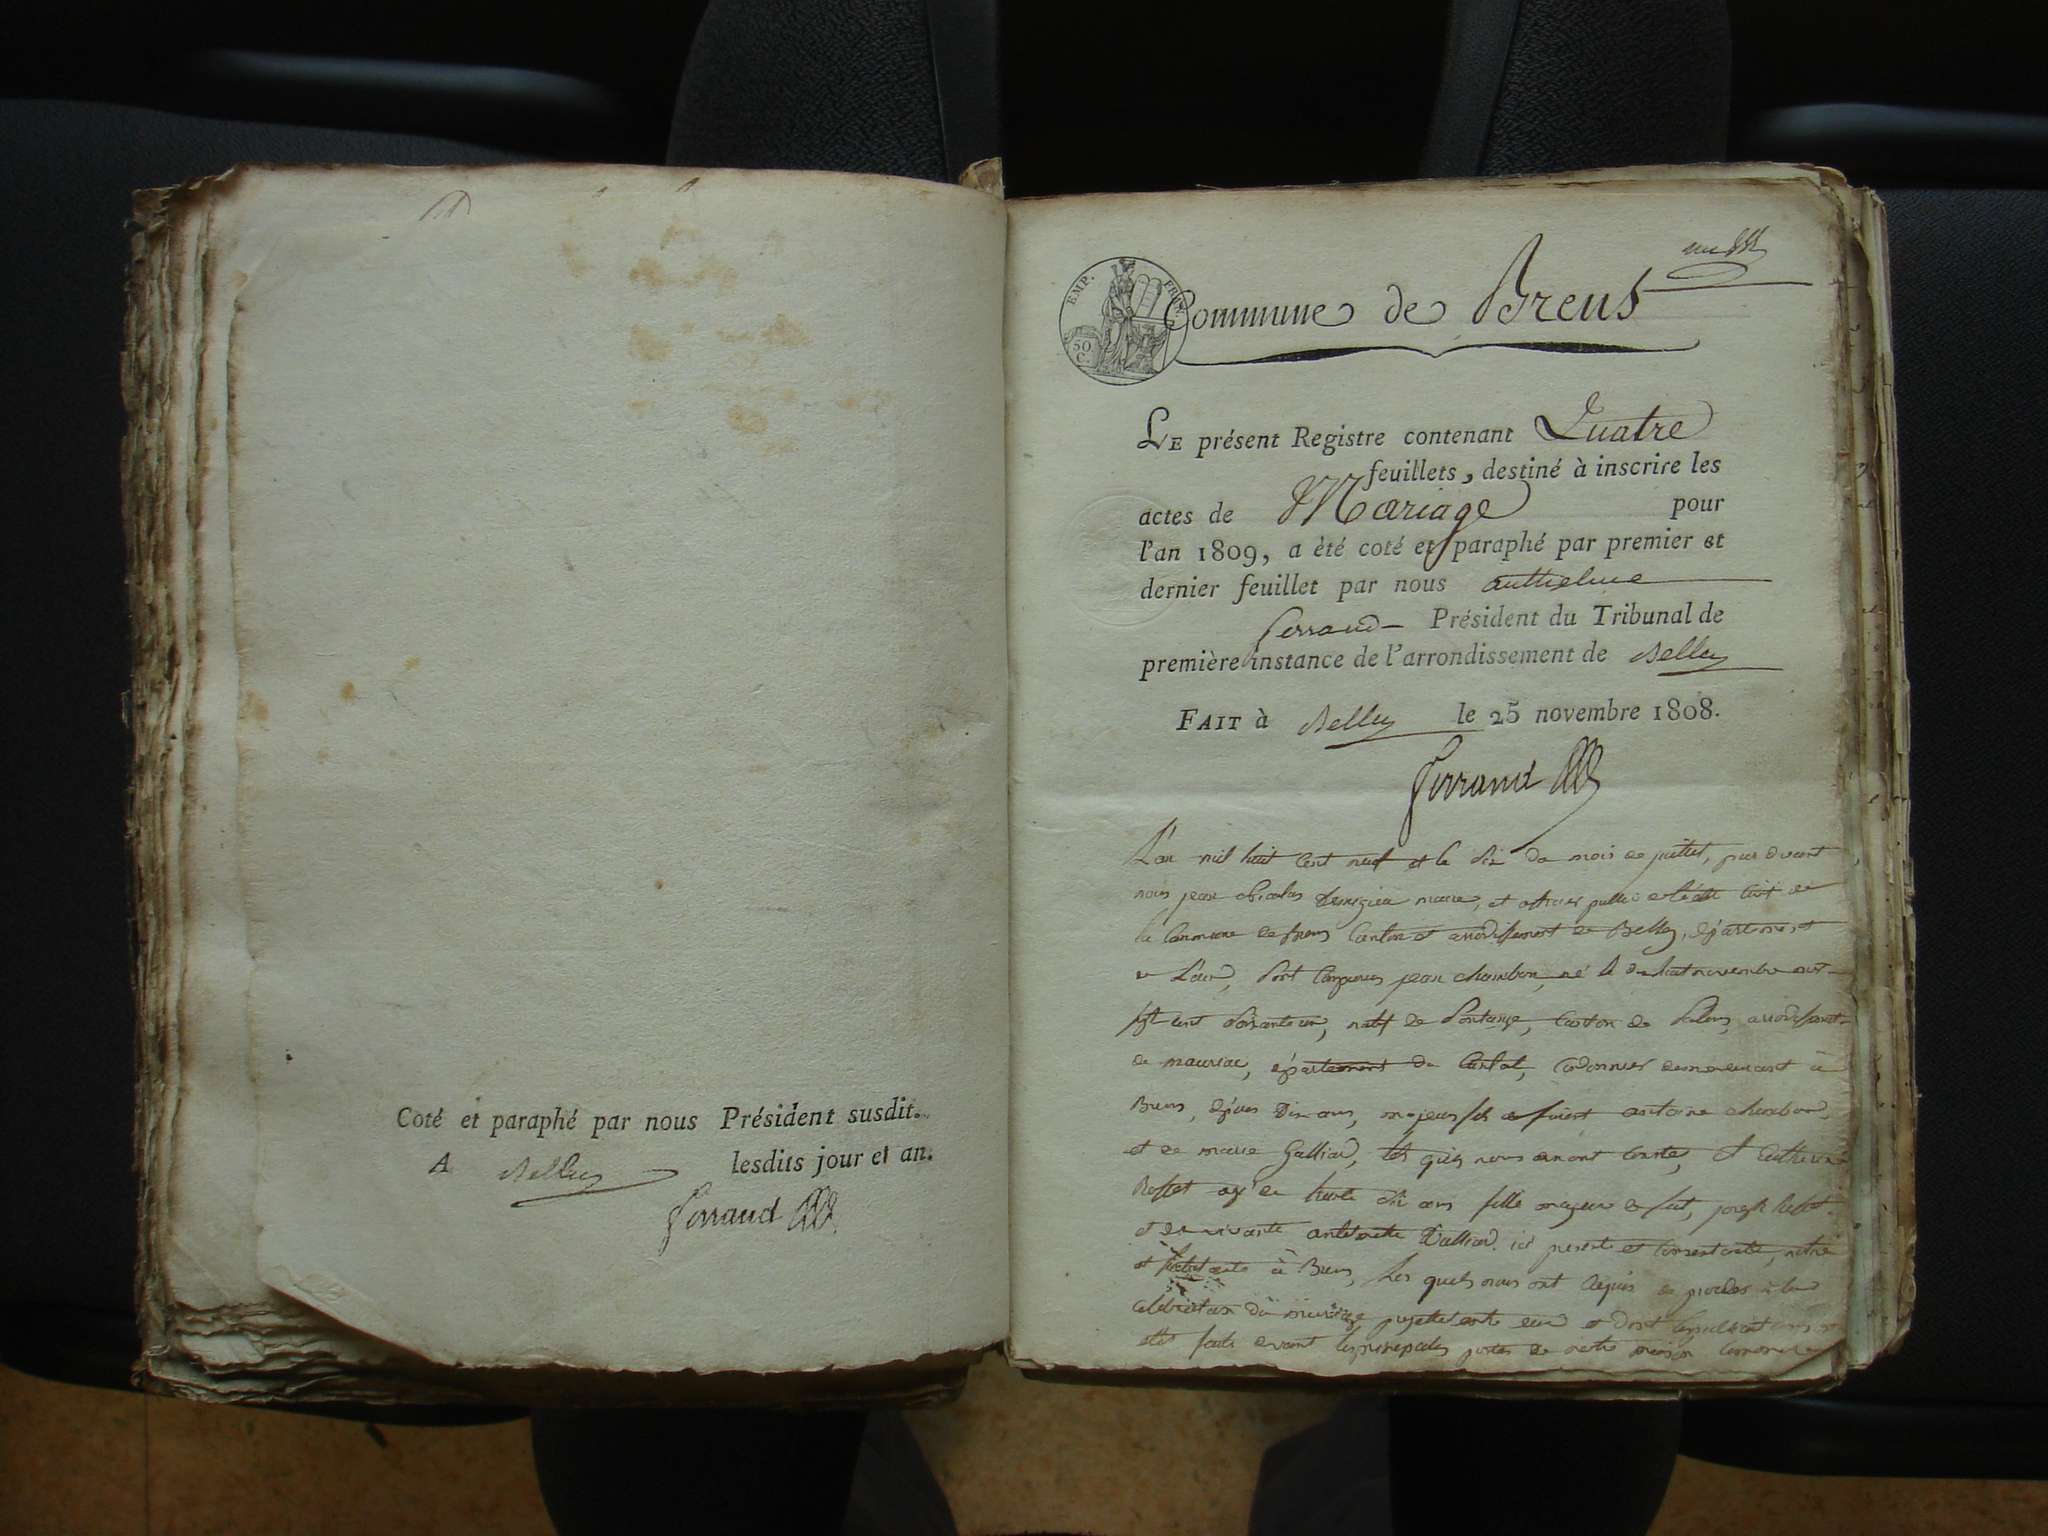 Coté et paraphé par nous Président susdit.
A Belley lesdits jour et an.
Ferrand
EMP. FRAN.
50 C.
Commune de Brens
LE présent Registre contenant Quatre
feuillets, destiné à inscrire les
actes de Mariage pour
l'an 1809, a èté coté et paraphé par premier et
dernier feuillet par nous anthelme
ferrand Président du Tribunal de
première instance de l'arrondissement de Belley
FAIT à Belley le 25 novembre 1808.
Ferrand
L'an mil huit cent neuf et le dix du mois de juillet, par devant
nous jean nicolas maire, et officier public de l'état civil de
la Commune de Brens Canton et arrondissement de Belley, département
de L'ain, sont comparus jean chambon, né le dix huit novembre mil
sept cent soixante un, natif de Fontange, Canton de arrondissement
de mauriac, département du Cantal, Cordonnier demeurant à
Brens, depuis dix ans, majeur fils de antoine chambon,
et de marie Galliard, nous Catherine
agée de trente ans fille majeure de joseph
et de vivante antoinette ici presente et consentante, native
et habitante à Brens, Les quels nous ont requis de proceder à la
celebration du mariage projetté entre eux et dont les publications ont
étés faites devant les principales portes de notre maison commune